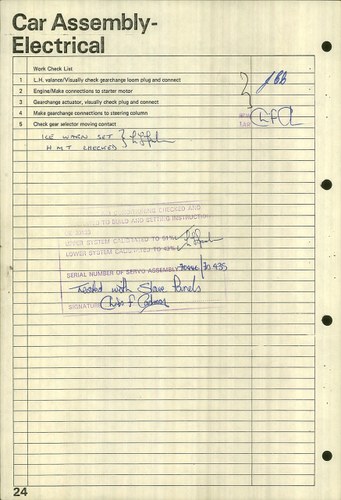 Car Assembly-
Electrical
Work Check List
1 L.H. valance/Visually check gearchange loom plug and connect
2 Engine/Make connections to starter motor
3 Gearchange actuator, visually check plug and connect
4 Make gearchange connections to steering column
5 Check gear selector moving contact
ICE WARN SET
HMT CHECKED
CHECKED AND
TO BUILD AND SETTING INSTRUCTION
LOWER SYSTEM CALIBRATED TO 51%
LOWER SYSTEM CALIBRATED TO 43%
SERIAL NUMBER OF SERVO ASSEMBLY
Tested with Slave Panels
SIGNATURE
24